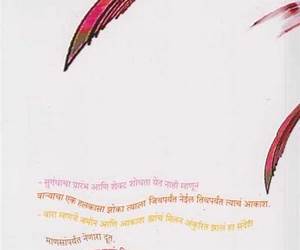 - सुगंधाचा प्रारंभ आणि शेवट शोधता येत नाही म्हणून
वाऱ्याचा एक हलकासा झोका त्याला जिथपर्यंत नेईल तिथपर्यंत त्याचं आकाश.
- वारा म्हणजे जमीन आणि आकाश ह्यांचं मिलन अंकुरित झालं हा संदेश
माणसांपर्यंत नेणारा दूत.